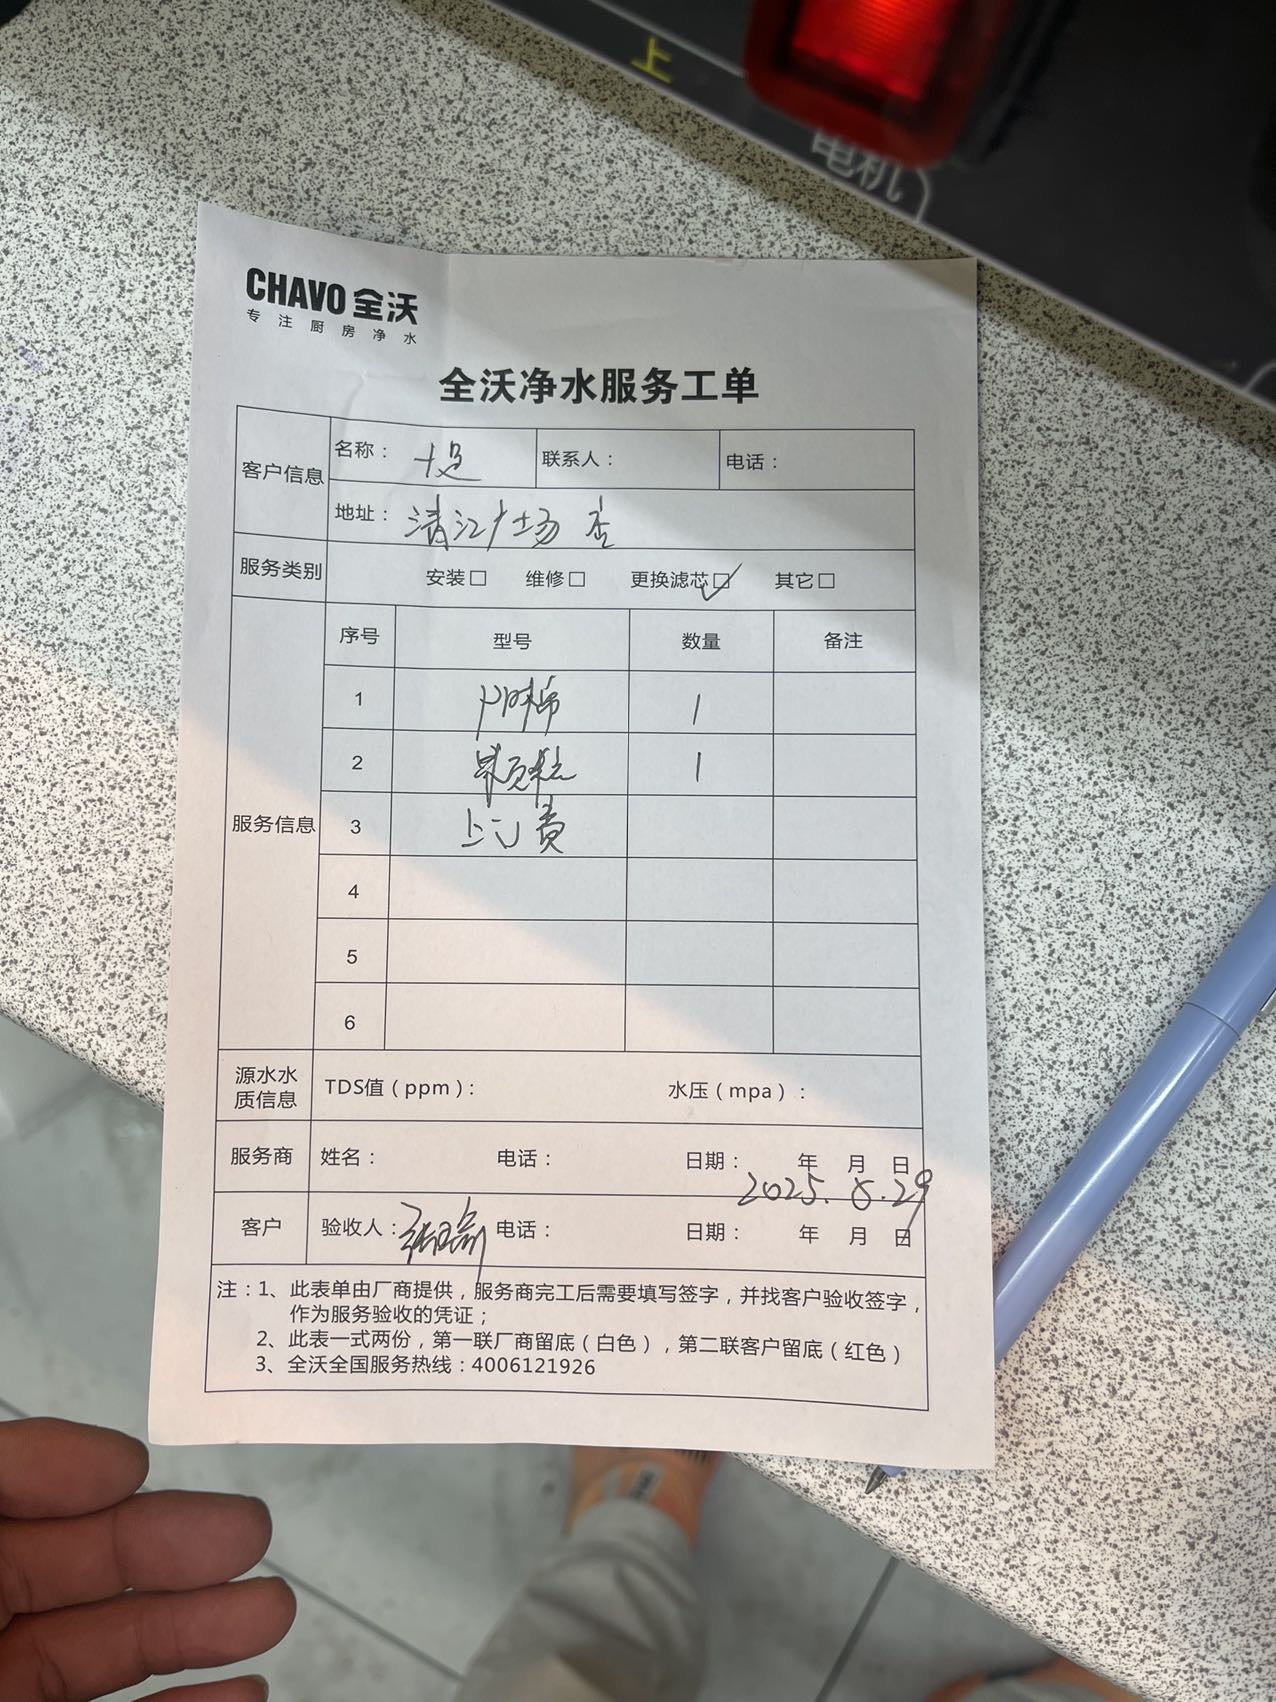 上
电机
CHAVO 全沃
专注厨房净水
全沃净水服务工单
客户信息
名称： 十足
联系人：
电话：
地址： 清江广场店
服务类别
安装□ 维修□ 更换滤芯☑ 其它□
服务信息
序号 型号 数量 备注
1 PP棉 1
2 1
3 上门费
4
5
6
源水水质信息
TDS值（ppm）： 水压（mpa）：
服务商 姓名： 电话： 日期： 年 月 日
2025.8.29
客户 验收人： 电话： 日期： 年 月 日
注：1、此表单由厂商提供，服务商完工后需要填写签字，并找客户验收签字，
作为服务验收的凭证；
2、此表一式两份，第一联厂商留底（白色），第二联客户留底（红色）
3、全沃全国服务热线：4006121926